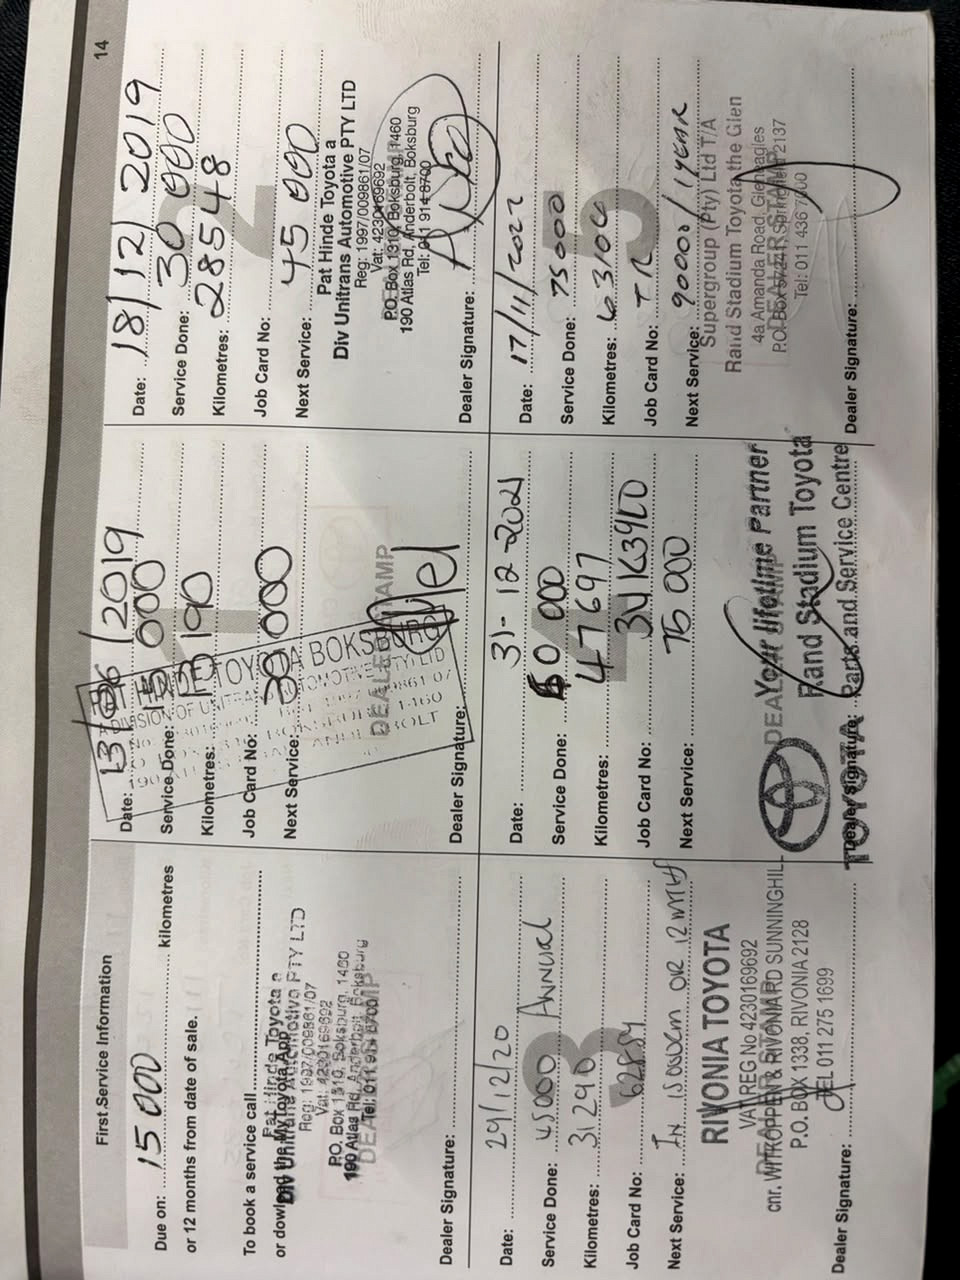 14
First Service Information
Due on: 15 000 kilometres
or 12 months from date of sale.
To book a service call
or dowload the MyToyota App
Pat Hinde Toyota a
Div Unitrans Automotive PTY LTD
Reg: 1997/009861/07
Vat: 4230169692
P.O. Box 1310, Boksburg, 1460
190 Atlas Rd, Anderbolt, Boksburg
Tel: 011 914 8700
DEALER STAMP
Dealer Signature:
1
Date: 13/06/2019
Service Done: 15 000
Kilometres: 13190
Job Card No:
Next Service: 30 000
HINDE TOYOTA BOKSBURG
DIVISION OF UNITRANS AUTOMOTIVE (PTY) LTD
DEALER STAMP
Dealer Signature:
2
Date: 18/12/2019
Service Done: 30 000
Kilometres: 28548
Job Card No:
Next Service: 45 000
Pat Hinde Toyota a
Div Unitrans Automotive PTY LTD
Reg: 1997/009861/07
Vat: 4230169692
P.O. Box 1310, Boksburg, 1460
190 Atlas Rd, Anderbolt, Boksburg
Tel: 011 914 8700
Dealer Signature:
3
Date: 29/12/20
Service Done: 45000 Annual
Kilometres: 31290
Job Card No:
Next Service: IN 15000km OR 12 mths
RIVONIA TOYOTA
VAT REG No 4230169692
DEALER STAMP
cnr. WITKOPPEN & RIVONIA RD SUNNINGHILL
P.O. BOX 1338, RIVONIA 2128
TEL 011 275 1699
Dealer Signature:
4
Date: 31-12-2021
Service Done: 60 000
Kilometres: 47697
Job Card No: 34K3900
Next Service: 75 000
DEALER STAMP
Your lifetime Partner
Rand Stadium Toyota
Parts and Service Centre
TOYOTA
Dealer Signature:
5
Date: 17/11/2022
Service Done: 75000
Kilometres: 63106
Job Card No: TR
Next Service: 90000 / 1 YEAR
Supergroup (Pty) Ltd T/A
Rand Stadium Toyota, the Glen
4a Amanda Road, Gleneagles
DEALER STAMP
Tel: 011 436 7600
Dealer Signature: